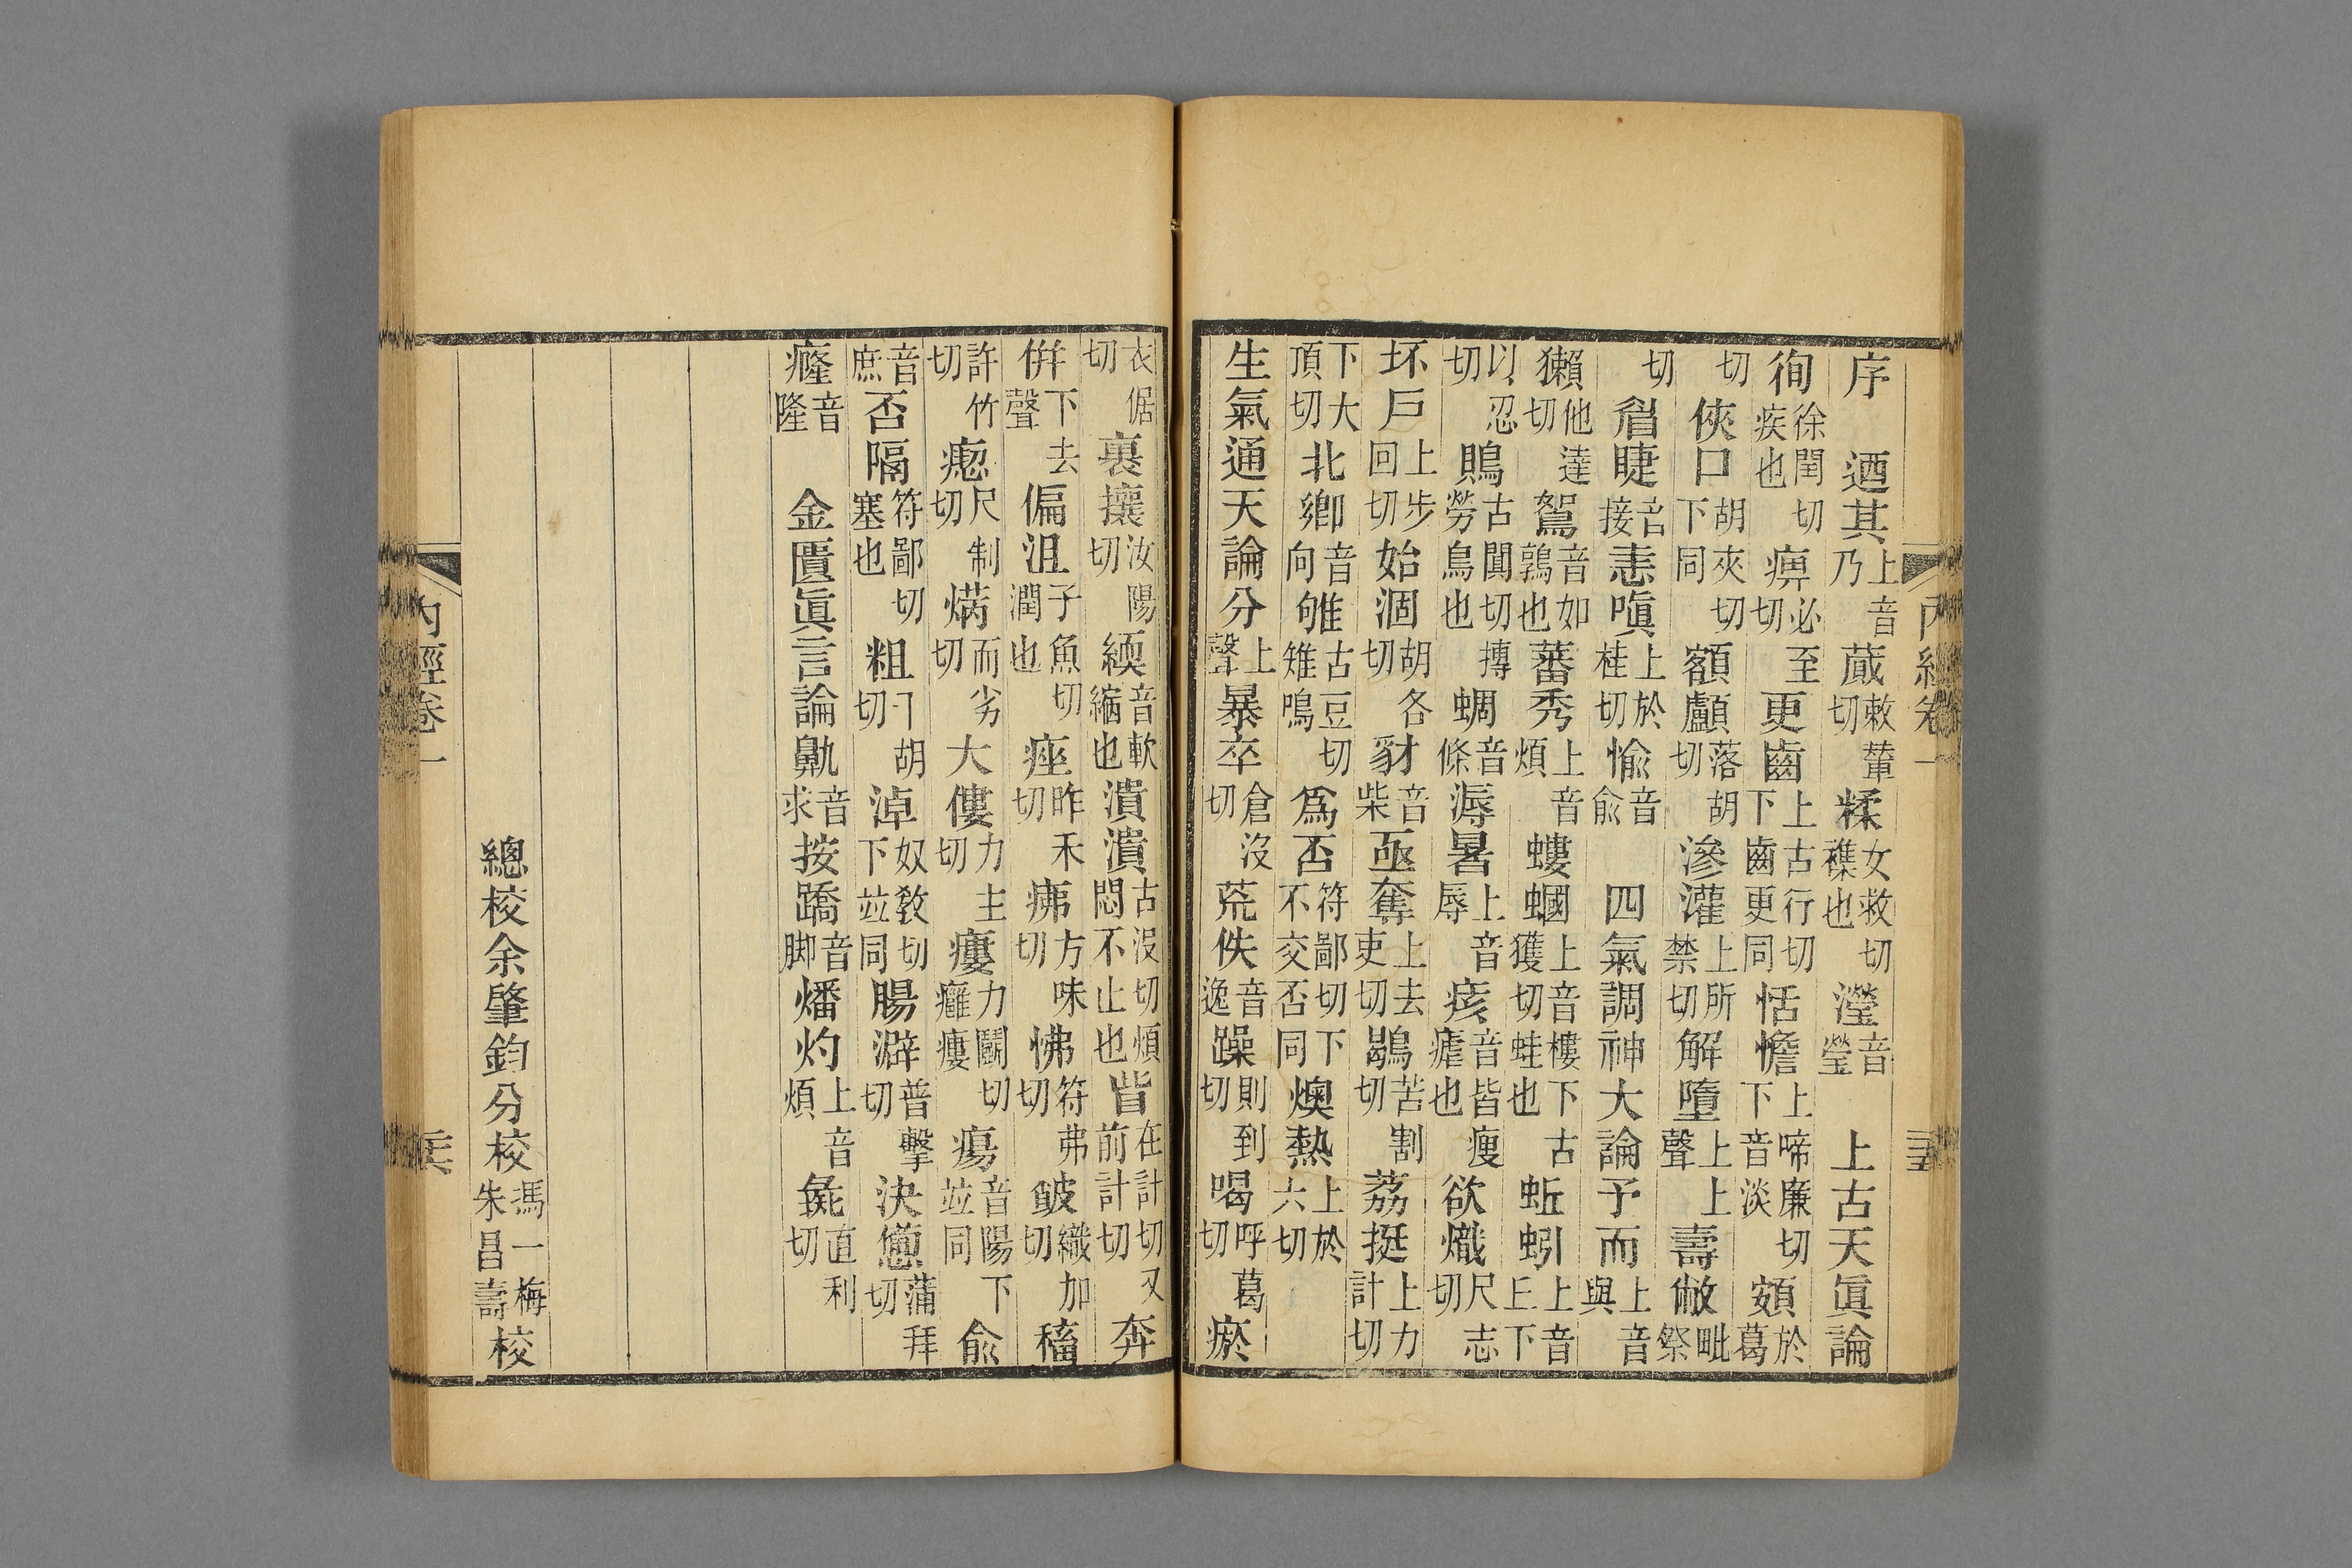 序　迺其上音乃蕆敕輦切糅女救切襍也瀅音瑩　上古天眞論
徇徐閏切疾也痹必至切更齒上古行切下齒更同恬憺上啼廉切下音淡頞於葛
切俠口胡夾切下同額顱落胡切滲灌上所禁切解墮上上聲壽敝毗祭
切睂睫音接恚嗔上於桂切愉音俞　四氣調神大論予而上音與
獺他達切鴽音如鶉也蕃秀上音煩螻蟈上音樓下古獲切蛙也蚯蚓上音丘下
以忍切鵙古闃切搏勞鳥也蜩音條溽暑上音辱痎音皆瘦瘧也欲熾尺志切
坏戶上步回切始涸胡各切豺音柴亟奪上去吏切鶡苦割切荔挺上力計切
下大頂切北鄉音向雊古豆切雉鳴爲否符鄙切下不交否同燠熱上於六切
生氣通天論分上聲暴卒倉沒切荒佚音逸躁則到切喝呼葛切瘀
衣倨切裏攘汝陽切緛音軟縮也潰潰古沒切煩悶不止也眥在計切又前計切奔
倂下去聲偏沮子魚切潤也痤昨禾切疿方味切怫符弗切皻織加切稸
許竹切瘛尺制切焫而劣切大僂力主切瘻力鬭切癰瘻瘍音陽下竝同俞
音庶否隔符鄙切塞也粗胡切淖奴敎切下竝同腸澼普擊切決憊蒲拜切
癃音隆　金匱眞言論鼽音求按蹻音脚燔灼上音煩彘直利切
總校余肇鈞分校馮一梅朱昌壽校
內經卷一